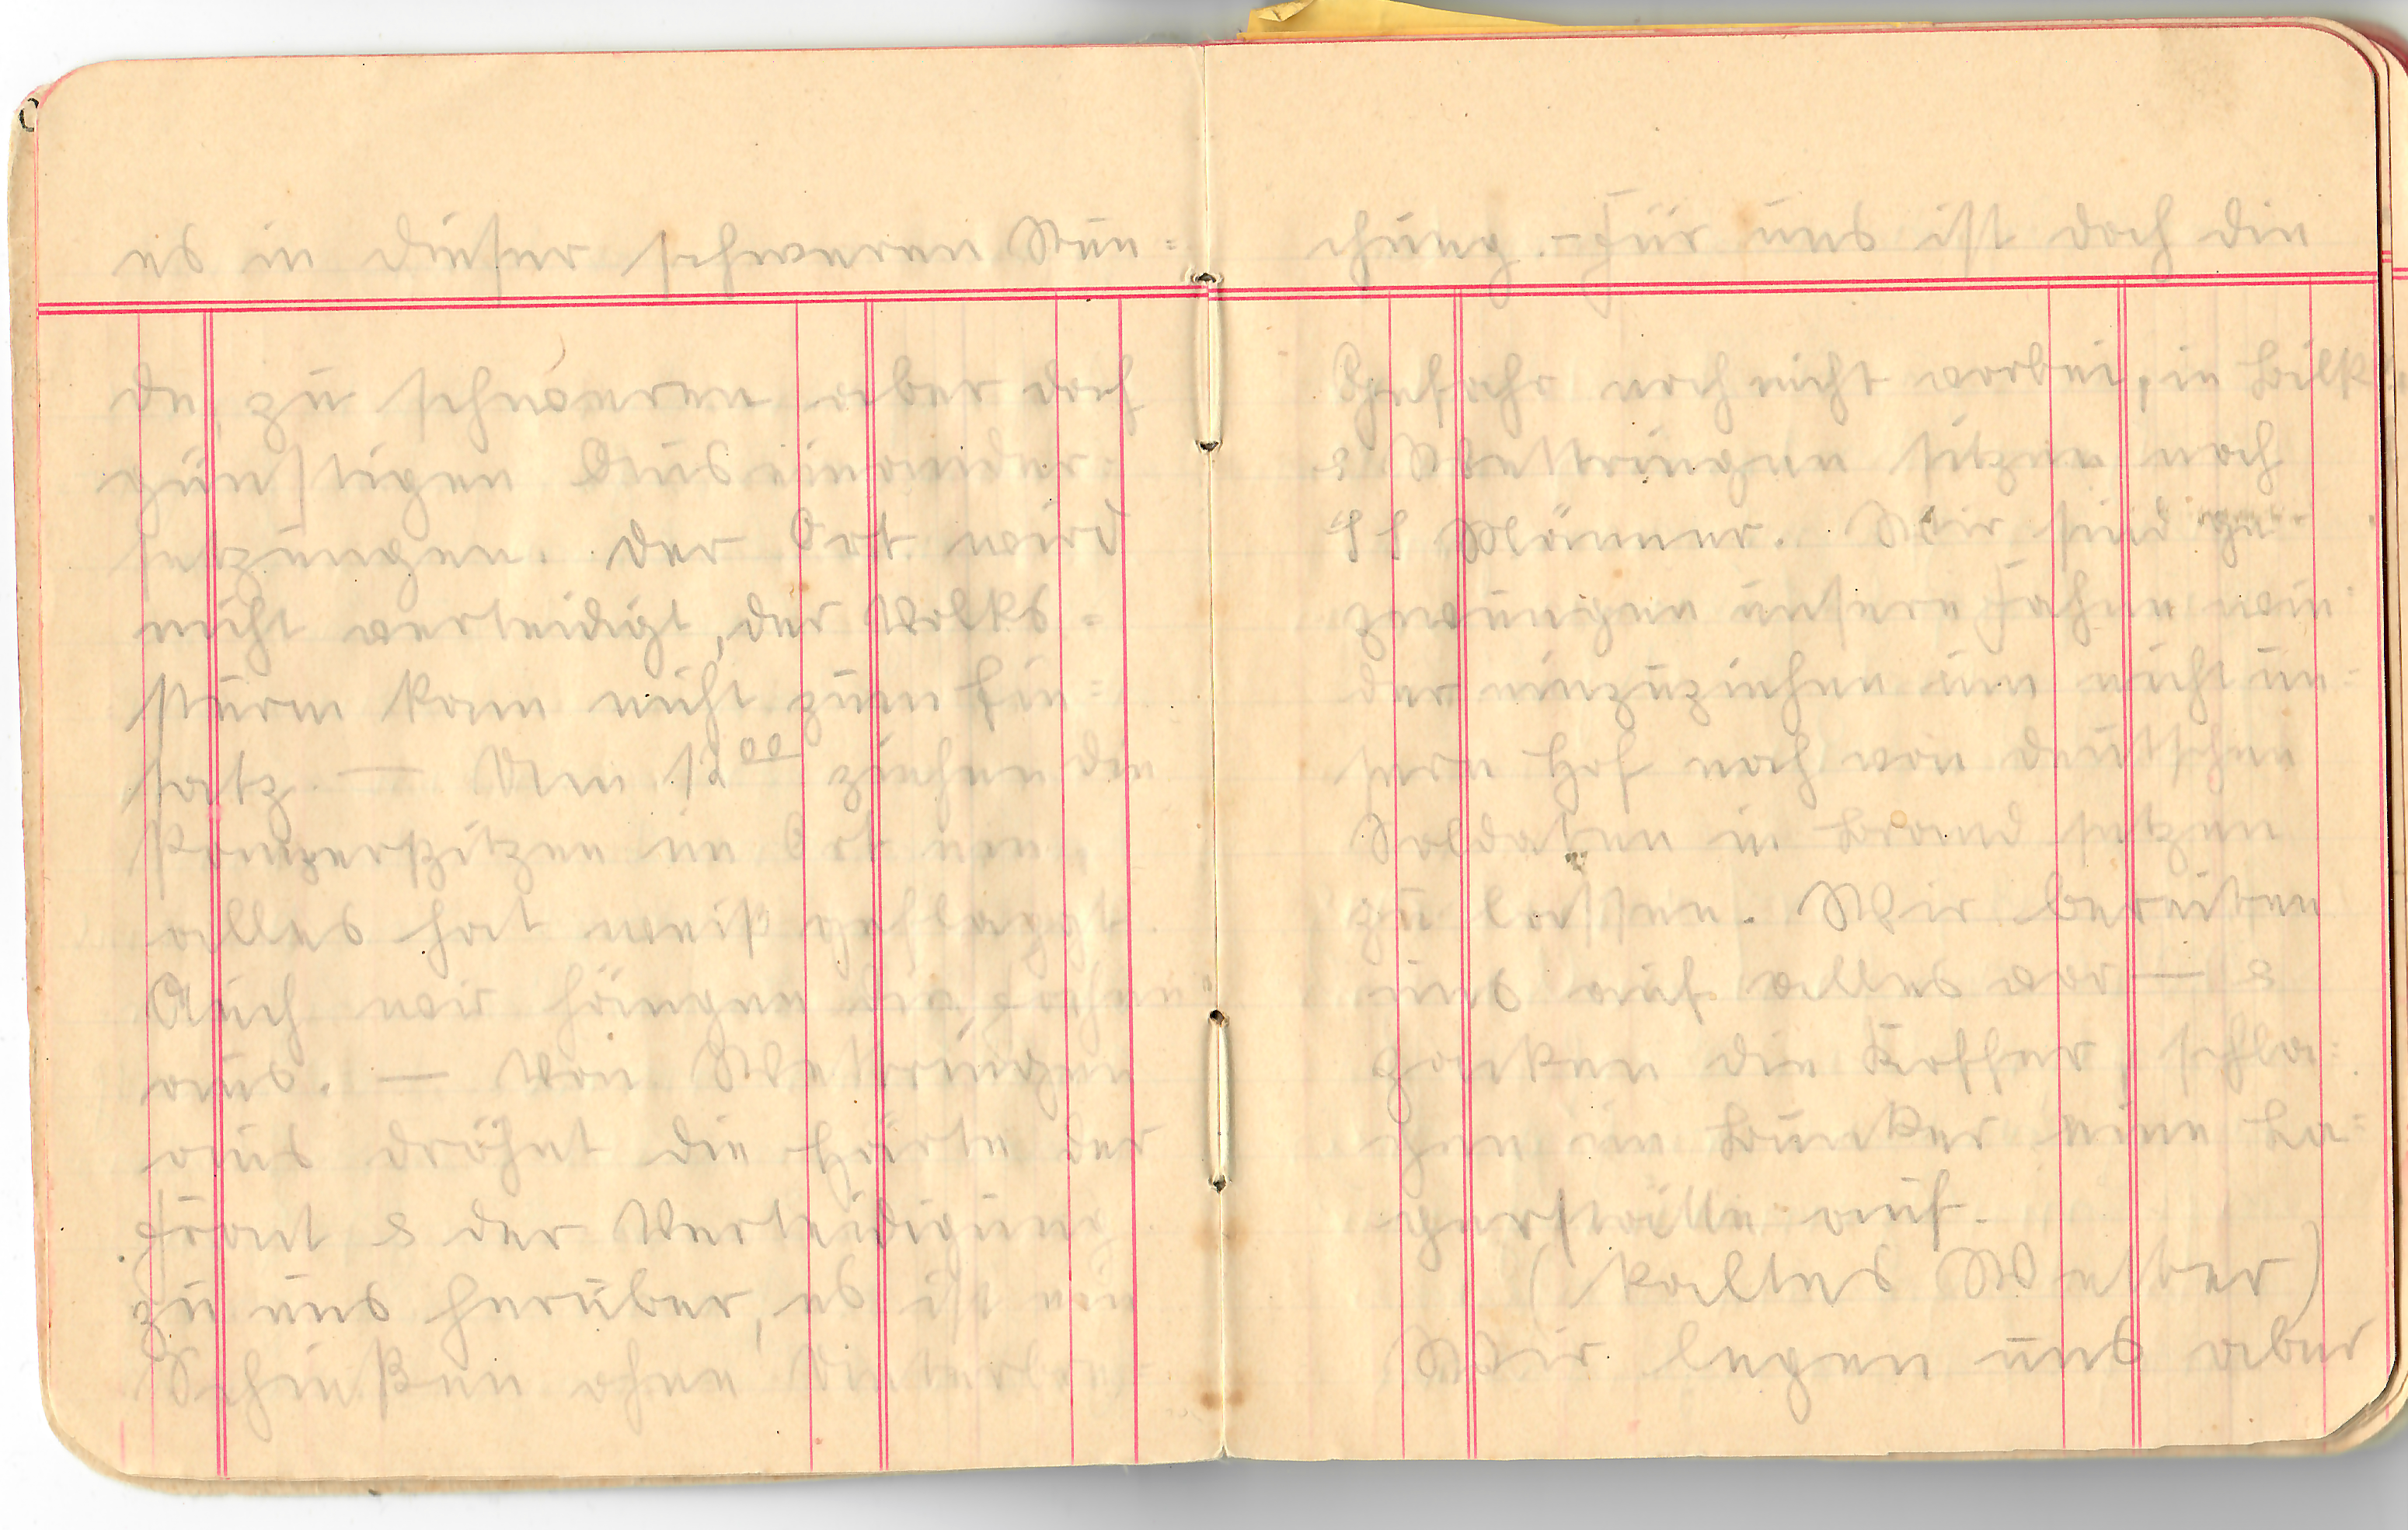 es in dieser schweren Stun=
de, zu schweren aber doch
günstigen Auseinander=
setzungen. Der Ort wird
nicht verteidigt, der Volks=
sturm kam nicht zum Ein=
satz. — Um 12⁰⁰ ziehen die
Panzerspitzen im Ort ein,
alles hat weiß geflaggt.
Auch wir hängen die Fahne
aus. — Von Wettringen
aus dröhnt die Härte der
Front & der Verteidigung
zu uns herüber, es ist ein
Schießen ohne
chung. – Für uns ist doch die
Gefahr noch nicht vorbei, in Bilk
& Wettringen sitzen noch
SS Männer. Wir sind ge
zwungen unsere Fahne wie=
der einzuziehen um nicht un=
sern Hof noch von deutschen
Soldaten in Brand setzen
zu lassen. Wir bereiten
uns auf alles vor — &
packen die Koffer, schla=
gen im Bunker eine La=
gerstätte auf.
(Kaltes Wetter)
Wir legen uns aber